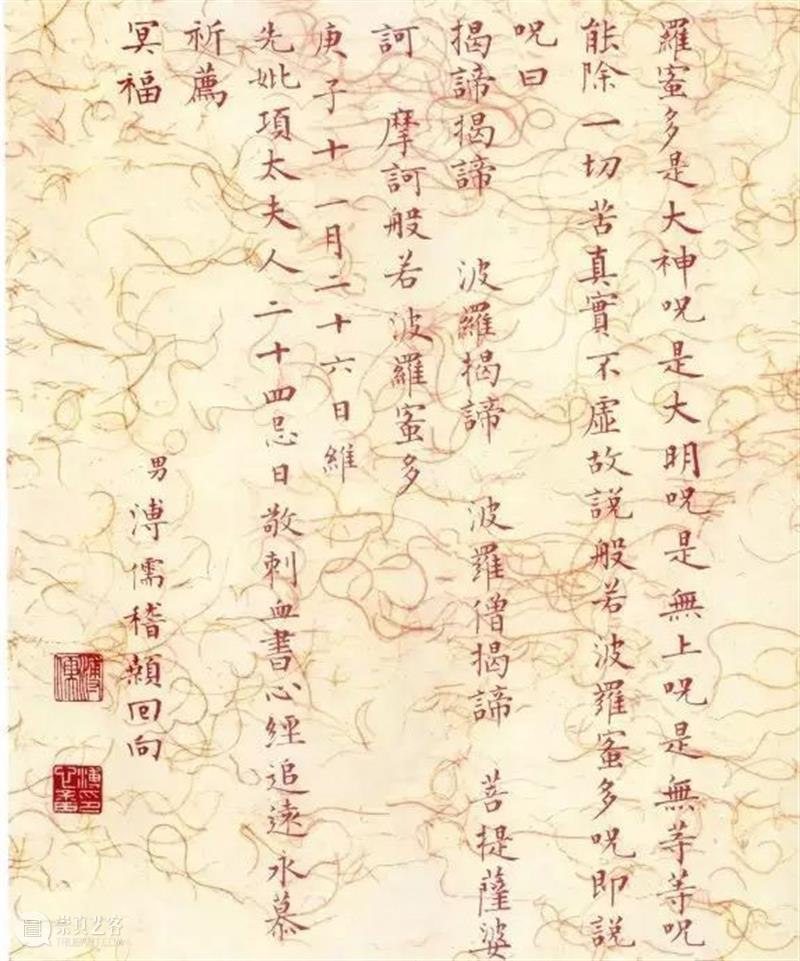 羅蜜多是大神呪是大明呪是無上呪是無等等呪
能除一切苦真實不虛故說般若波羅蜜多呪即說
呪曰
揭諦揭諦 波羅揭諦 波羅僧揭諦 菩提薩婆
訶 摩訶般若波羅蜜多
庚子十一月二十六日維
先妣項太夫人二十四忌日敬刺血書心經追遠永慕
祈薦
冥福
男 溥儒稽顙回向
溥儒
崇真艺客
TRUEART.COM